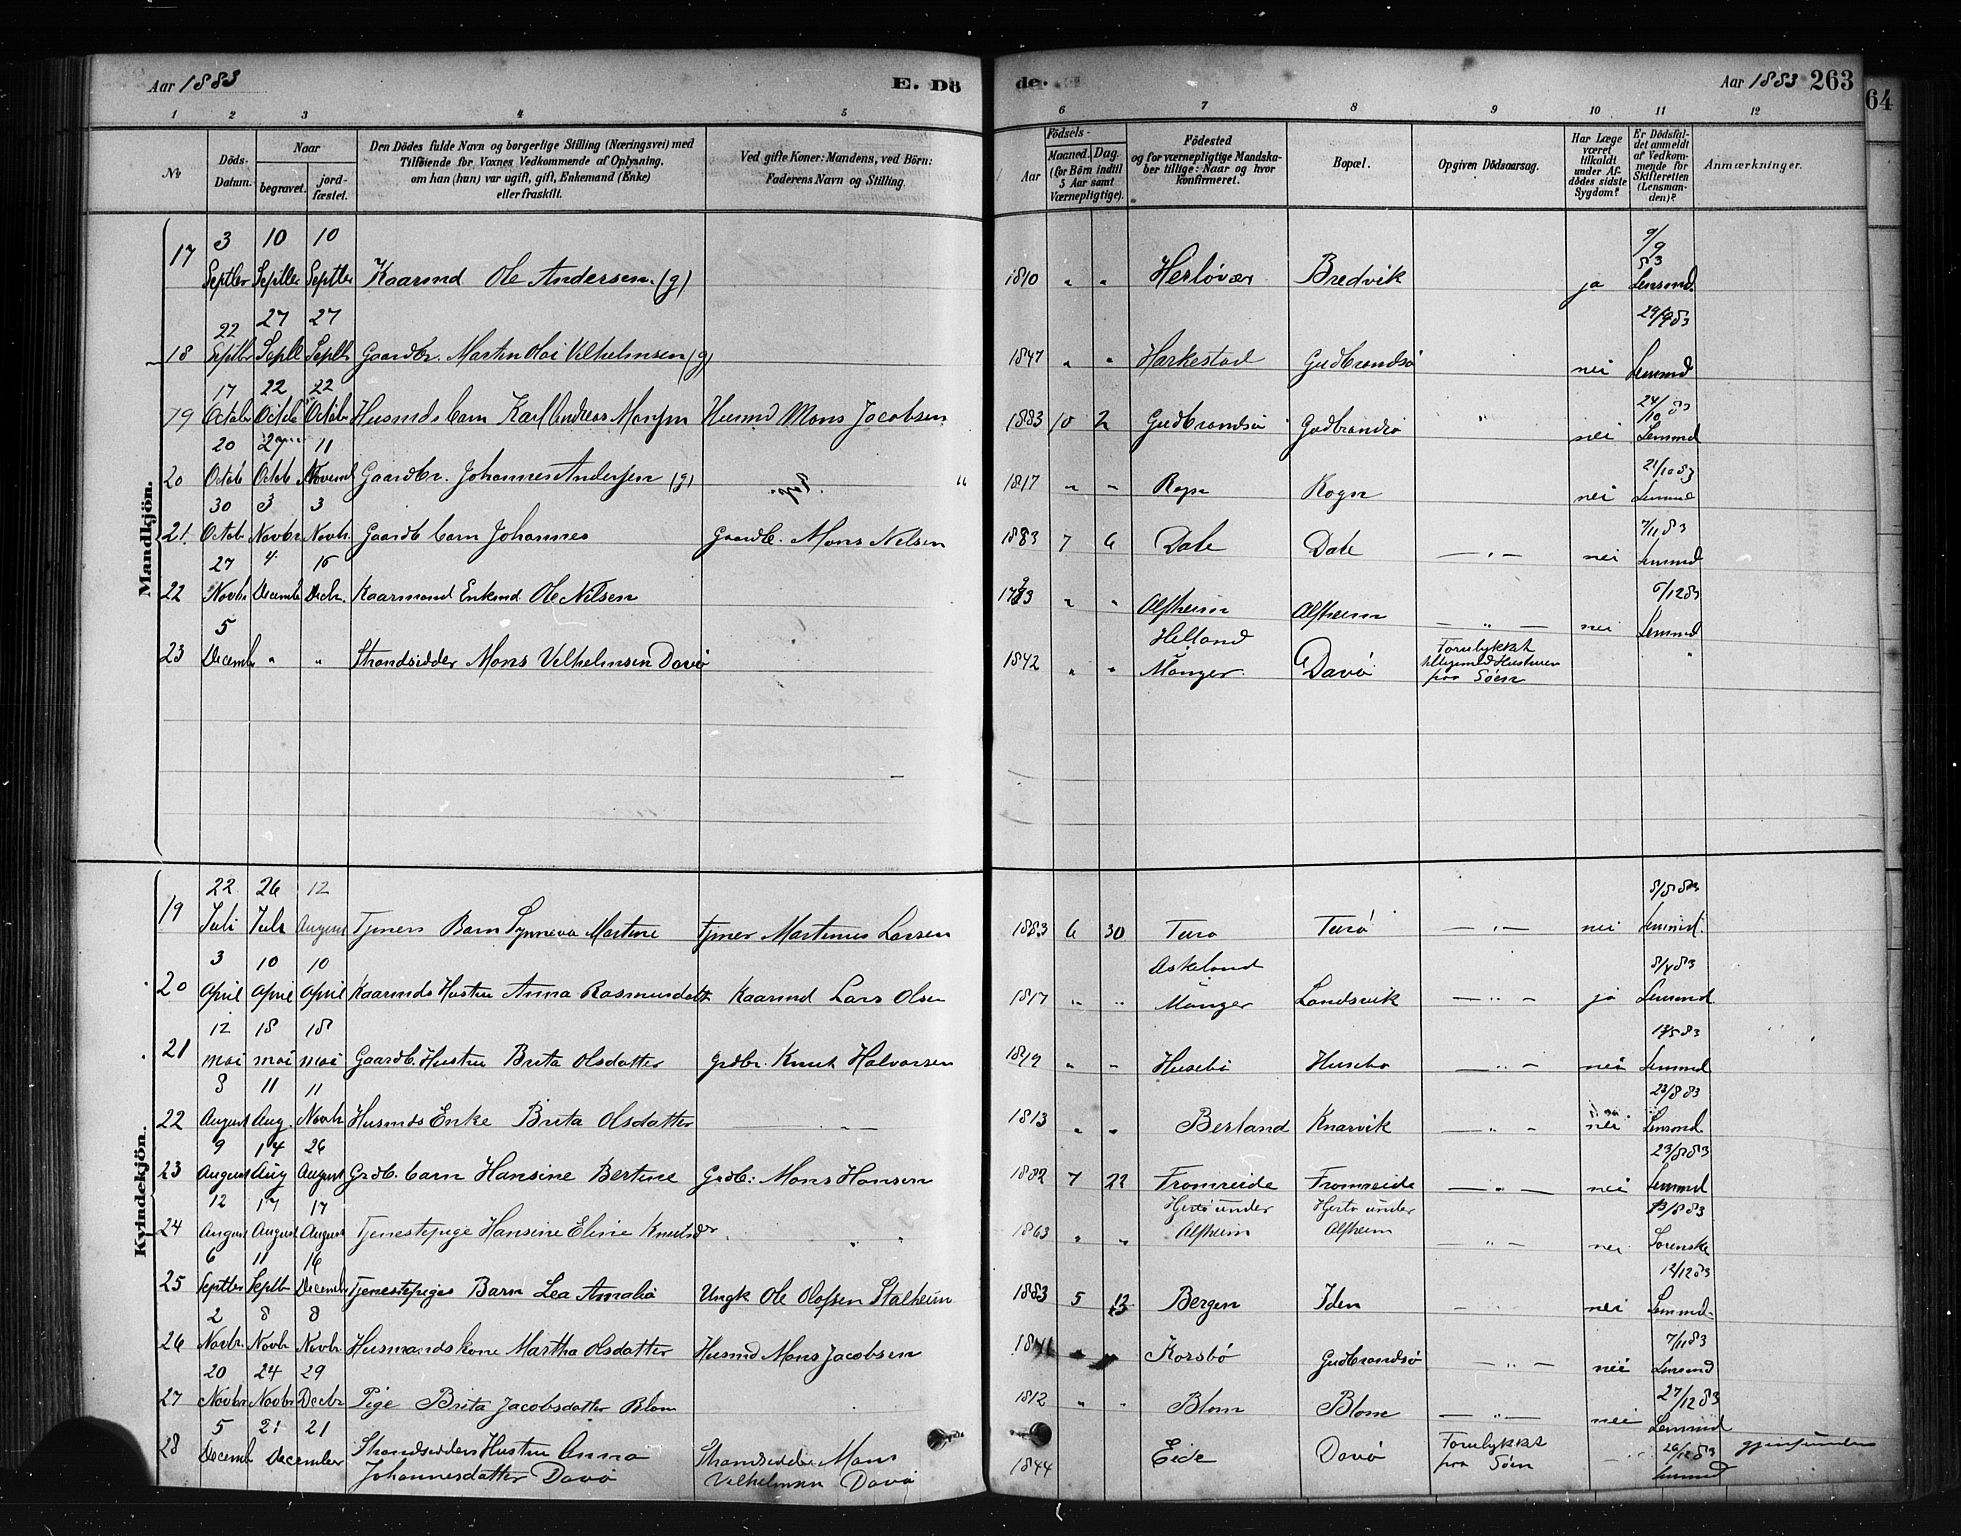 Aar 1883 E. Dö de. Aar 1883 263
64
1 2 3 4 5 6 7 8 9 10 11 12
No
Döds-Datum.
Naar
begravet.
jord-fæstet.
Den Dödes fulde Navn og borgerlige Stilling (Næringsvei) med
Tilföiende for Voxnes Vedkommende af Oplysning,
om han (hun) var ugift, gift, Enkemand (Enke)
eller fraskilt.
Ved gifte Koner: Mandens, ved Börn:
Faderens Navn og Stilling.
Födsels-
Aar
Maaned. Dag.
(for Börn indtil
5 Aar samt
Værnepligtige).
Födested
og for værnepligtige Mandska-
ber tillige: Naar og hvor
konfirmeret.
Bopæl.
Opgiven Dödsaarsag.
Har Læge
været
tilkaldt
under Af-
dödes sidste
Sygdom?
Er Dödsfal-
det anmeldt
af Vedkom-
mende for
Skifteretten
(Lensman-
den)?
Anmærkninger.
Mandkjön.
17 3 Septbr 10 Septbr 10 Septbr Kaarmd Ole Andersen. (g) 1810 " " Herløvær Bredvik ja 9/9 83 Lensmd.
18 22 Septbr 27 Septb 27 Septb Gaardbr. Martin Olai Vilhelmsen (g) 1847 " " Harkestad Gudbrandsø nei Lensmd
19 17 Octobr 22 Octob 22 Octobr Husmds barn Karl Andreas Monsen Husmd Mons Jacobsen 1883 10 2 Gudbrandsø Gudbrandsø " nei Lensmd
20 20 Octob 27 Octob 11 Novemb Gaardbr. Johannes Andersen (g) " 1817 " " Rogn Rogn nei 21/10 83 Lensmd
21. 30 Octob 3 Novbr 3 Novbr. Gaardb barn Johannes Gaardb. Mons Nilsen 1883 7 6 Dale Dale — " — nei 7/11 83 Lensmd
22 27 Novbr 4 Decemb 16 Decbr. Kaarmand Enkemd Ole Nilsen " " Alfheim Alfheim — " — nei 6/12 83 Lensmd
23 5 Decemb " " Strandsidder Mons Vilhelmsen Davø 1842 " " Helland Manger. Davø Forulykket tilligemed Hustruen paa Søen "
Kvindekjön.
19 22 Juli 26 Juli 12 August Tjeners Barn Synneva Martine Tjener Martinus Larsen 1883 6 30 Turø Turø — " — nei 8/8 83 Lensmd.
20 3 April 10 April 10 April Kaarmds Hustru Anna Rasmusdatt Kaarmd Lars Olsen 1817 " " Askeland Manger Landsvik — " — ja 8/4 83 Lensmd
21 12 mai 18 mai 18 mai Gaardb. Hustru Brita Olsdatter Grdbr. Knut Halvorsen " " Husebø Husebø — " — nei Lensmd
22 8 August 11 Aug. 11 Novbr Husmds Enke Brita Olsdatter — " — 1813 " " Berland Knarvik — " — nei 23/8 83 Lensmd.
23 9 August 14 Aug 26 August Grdb. barn Hansine Bertine Grdb. Mons Hansen 1882 7 22 Fromreide Fromreide — " — nei 23/8 83 Lensmd
24 12 August 17 August 17 August Tjenestepige Hansine Eline Knutsdr " " 1863 " " Hjertø under Alfheim Hertø under Alfheim — " — nei
25 6 Septbr 11 Septb 16 Decemb Tjenestepiges Barn Lea Amalia Ungk Ole Olafsen Stalheim 1883 5 Bergen Iden nei 12/12 83 Lensmd.
26 2 Novbr. 8 Novb 8 Novbr Husmandskone Martha Olsdatter Husmd Mons Jacobsen Korsbø Gudbrandsø — " — nei 7/11 83 Lensmd
27 20 Novbr 24 Novbr 29 Decbr Pige Brita Jacobsdatter Blom 1812 " " Blom Blom — " — nei 27/12 83 Lensmd
28 5 Decemb 21 21 December Strandsidders Hustru Anna Johannesdatter Davø Strandsidder Mons Vilhelmsen Davø 1844 Eide Davø Forulykket paa Søen Lensmd gjenfunden